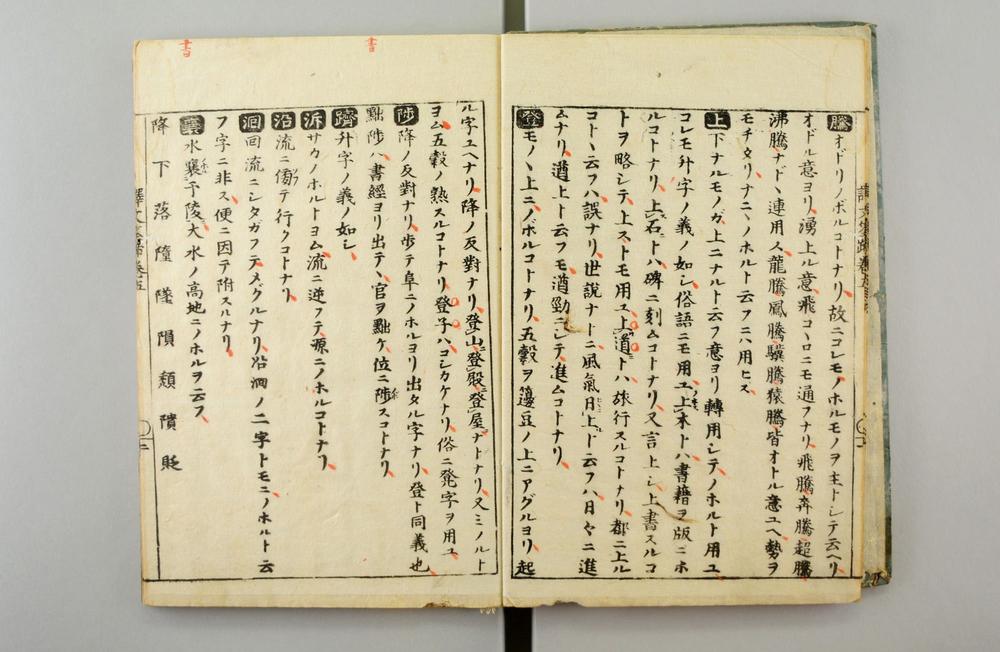 騰 オドリノボルコトナリ故ニコレモノホルモノヲ主トシテ云ヘリ
オドル意ヨリ湧上ル意飛コヽロニモ通フナリ飛騰奔騰超騰
沸騰ナドヽ連用人龍騰鳳騰驥騰猿騰皆オトル意ユヘ勢ヲ
モチタリナニヽノホルト云フニハ用ヒス
上 下ナルモノガ上ニナルト云フ意ヨリ轉用シテノホルト用ユ
コレモ升字ノ義ノ如シ俗語ニモ用ユ上木トハ書籍ヲ版ニホ
ルコトナリ上石トハ碑ニ刻ムコトナリ又言上シ上書スルコ
トヲ略シテ上ストモ用ユ上道トハ旅行スルコトナリ都ニ上ル
コトヽ云フハ誤ナリ世説ナトニ風氣日上ト云フハ日々ニ進
ムナリ遒上ト云フモ遒勁ニシテ進ムコトナリ
登 モノヽ上ニノボルコトナリ五穀ヲ籩豆ノ上ニアグルヨリ起
ル字ユヘナリ降ノ反對ナリ登山登殿登屋ナトナリ又ミノルト
ヨム五穀ノ熟スルコトナリ登子ハコシカケナリ俗ニ凳字ヲ用ユ
陟 降ノ反對ナリ歩テ阜ニノホルヨリ出タル字ナリ登ト同義也
黜陟ハ書經ヨリ出テヽ官ヲ黜ケ位ニ陟スコトナリ
躋 升字ノ義ノ如シ
泝 サカノホルトヨム流ニ逆フテ源ニノホルコトナリ
沿 流ニ傍テ行クコトナリ
洄 回流ニシタガフテメグルナリ沿洄ノ二字トモニノホルト云
フ字ニ非ス便ニ因テ附スルナリ
襄 水襄予陵大水ノ高地ニノホルヲ云フ
降下落隨墜隕頽隤貶